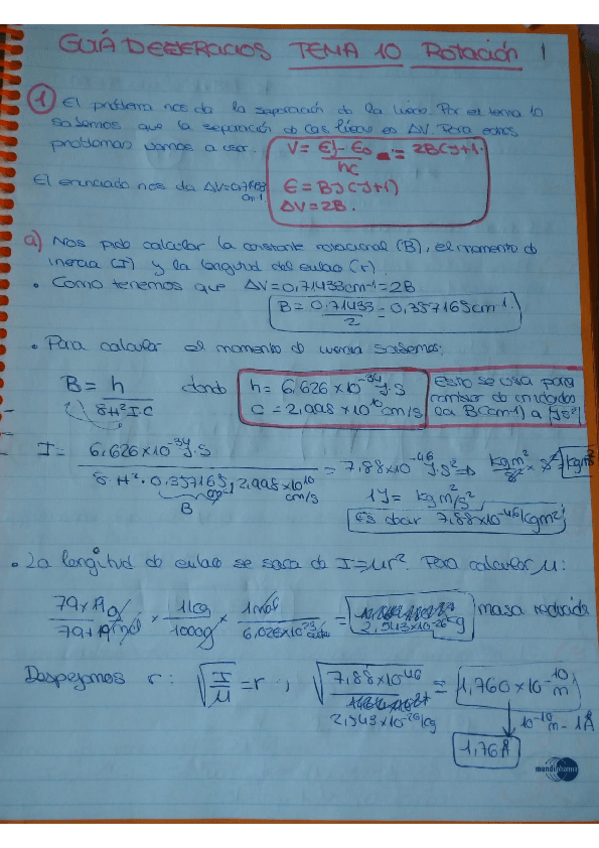 GUÍA DE EJERCICIOS TEMA 10 Rotación 1
① El problema nos da la separación de la línea. Por el tema 10
sabemos que la separación de las líneas es ΔV. Para estos
problemas vamos a usar.
V = EJ - E0 / hc = 2B(J+1).
E = BJ(J+1)
ΔV = 2B.
El enunciado nos da ΔV=0,71433 cm-1
a) Nos pide calcular la constante rotacional (B), el momento de
inercia (I) y la longitud del enlace (r).
• Como tenemos que ΔV=0,71433cm-1=2B
B = 0,71433 / 2 = 0,357165cm-1.
• Para calcular el momento de inercia sabemos:
B = h / 8π²I·C donde
h = 6,626×10-34 J·S
C = 2,998×10^10 cm/s
Esto se usa para cambiar de unidades la B(cm-1) a (J s²)
I = 6,626×10-34 J·S / 8π²·0,357165·2,998×10^10 cm/s = 7,88×10-46 J·S² ⇒ kgm²/s² × s² = kgm²
B
1J = kgm²/s²
Es decir 7,88×10-46 kgm²
• La longitud de enlace se saca de I=μr². Para calcular μ:
× 1kg / 1000g × 1mol / = 2,543×10-26 kg masa reducida
Despejamos r: √I/μ = r , √7,88×10-46 / 2,543×10-26 kg = 1,760×10-10 m
10-10 m - 1Å
1,76Å